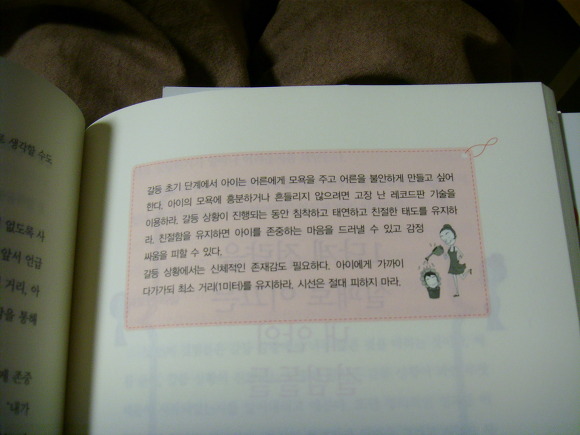 도 생각할 수도
없도록 사
앞서 언급
거리, 아
을 통해
게 존중
"내가
갈등 초기 단계에서 아이는 어른에게 모욕을 주고 어른을 불안하게 만들고 싶어
한다. 아이의 모욕에 흥분하거나 흔들리지 않으려면 고장 난 레코드판 기술을
이용하라. 갈등 상황이 진행되는 동안 침착하고 태연하고 친절한 태도를 유지하
라. 친절함을 유지하면 아이를 존중하는 마음을 드러낼 수 있고 감정
싸움을 피할 수 있다.
갈등 상황에서는 신체적인 존재감도 필요하다. 아이에게 가까이
다가가되 최소 거리(1미터)를 유지하라. 시선은 절대 피하지 마라.